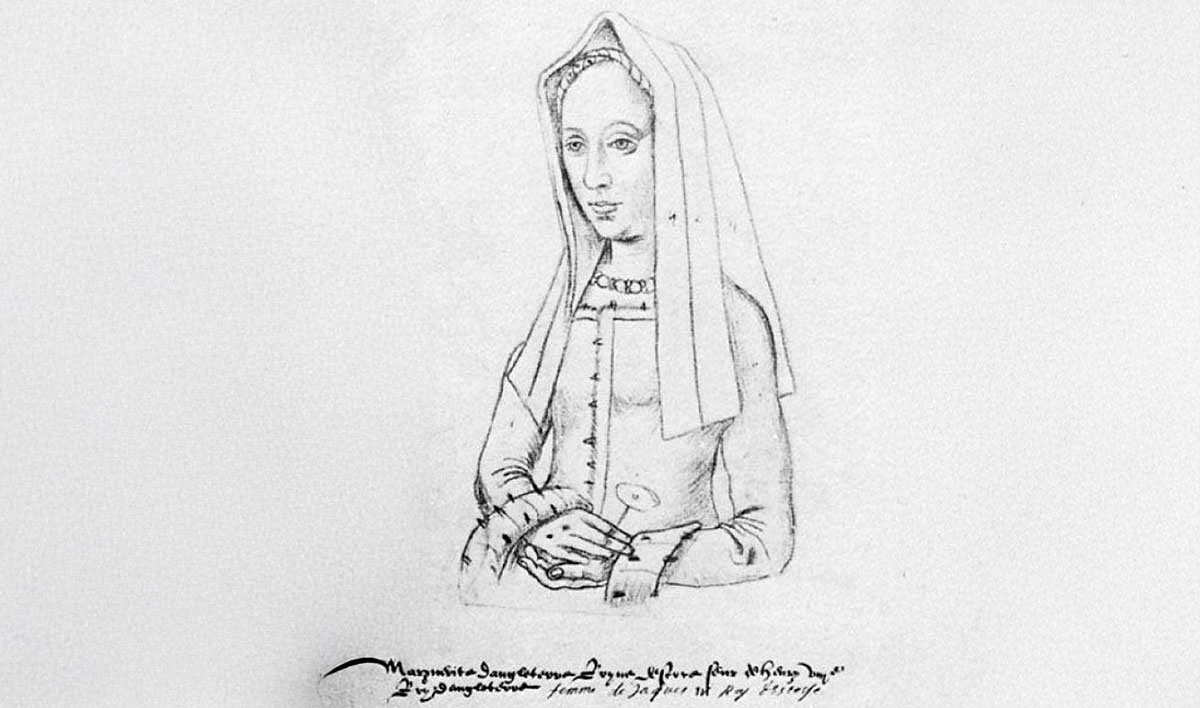 Marguerite dangleterre Royne descosse seur de henry viij^e
Roy dangleterre femme de Jaques IIII Roy d'Escosse